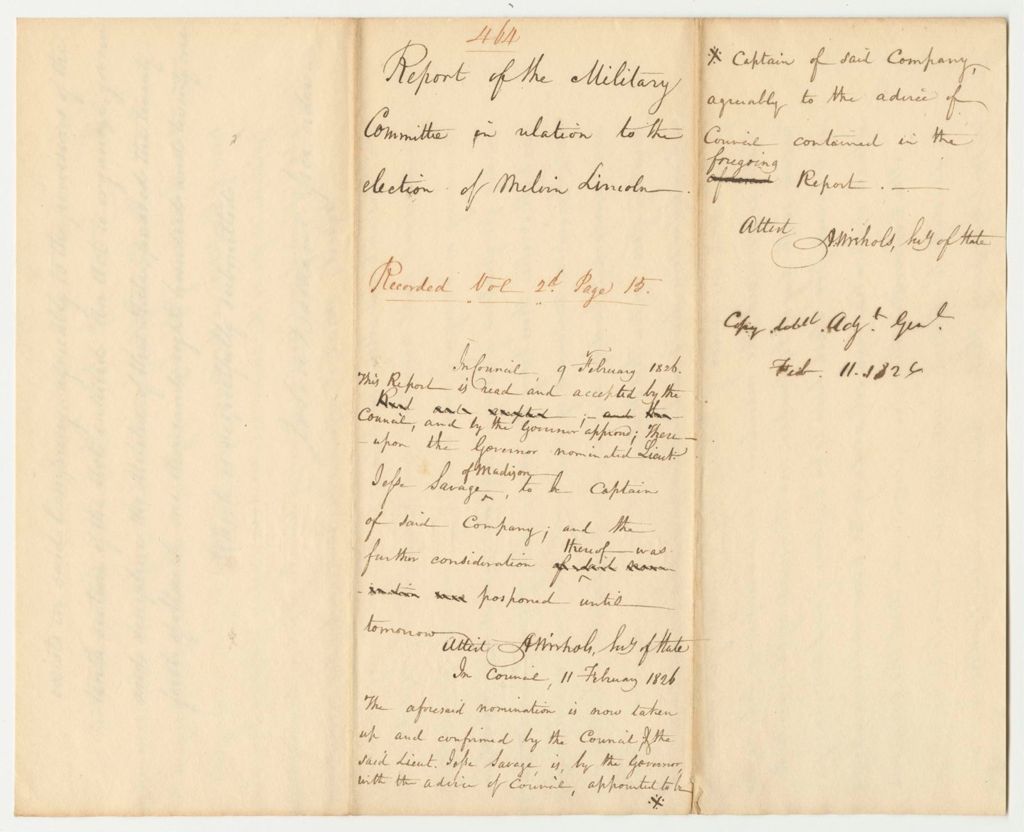 464
Report of the Military
Committee in relation to the
election of Melvin Lincoln.
Recorded Vol 2d. Page 15.
In Council, 9 February 1826.
This Report is read and accepted by the
Council, and by the Governor approved; There-
upon the Governor nominated Lieut.
of Madison
Jesse Savage ‸, to be Captain
of said Company; and the
thereof was
further consideration
posponed until
tomorrow
Attest A Nichols, Secy of State
In Council, 11 February 1826
The aforesaid nomination is now taken
up and confirmed by the Council & the
said Lieut. Jesse Savage is, by the Governor,
with the advice of Council, appointed to be
※
※ Captain of said Company,
agreeably to the advice of
Council contained in the
foregoing
aforesaid Report. —
Attest A Nichols, Secy of State
Copy Adjt. Genl.
Feb. 11. 1826